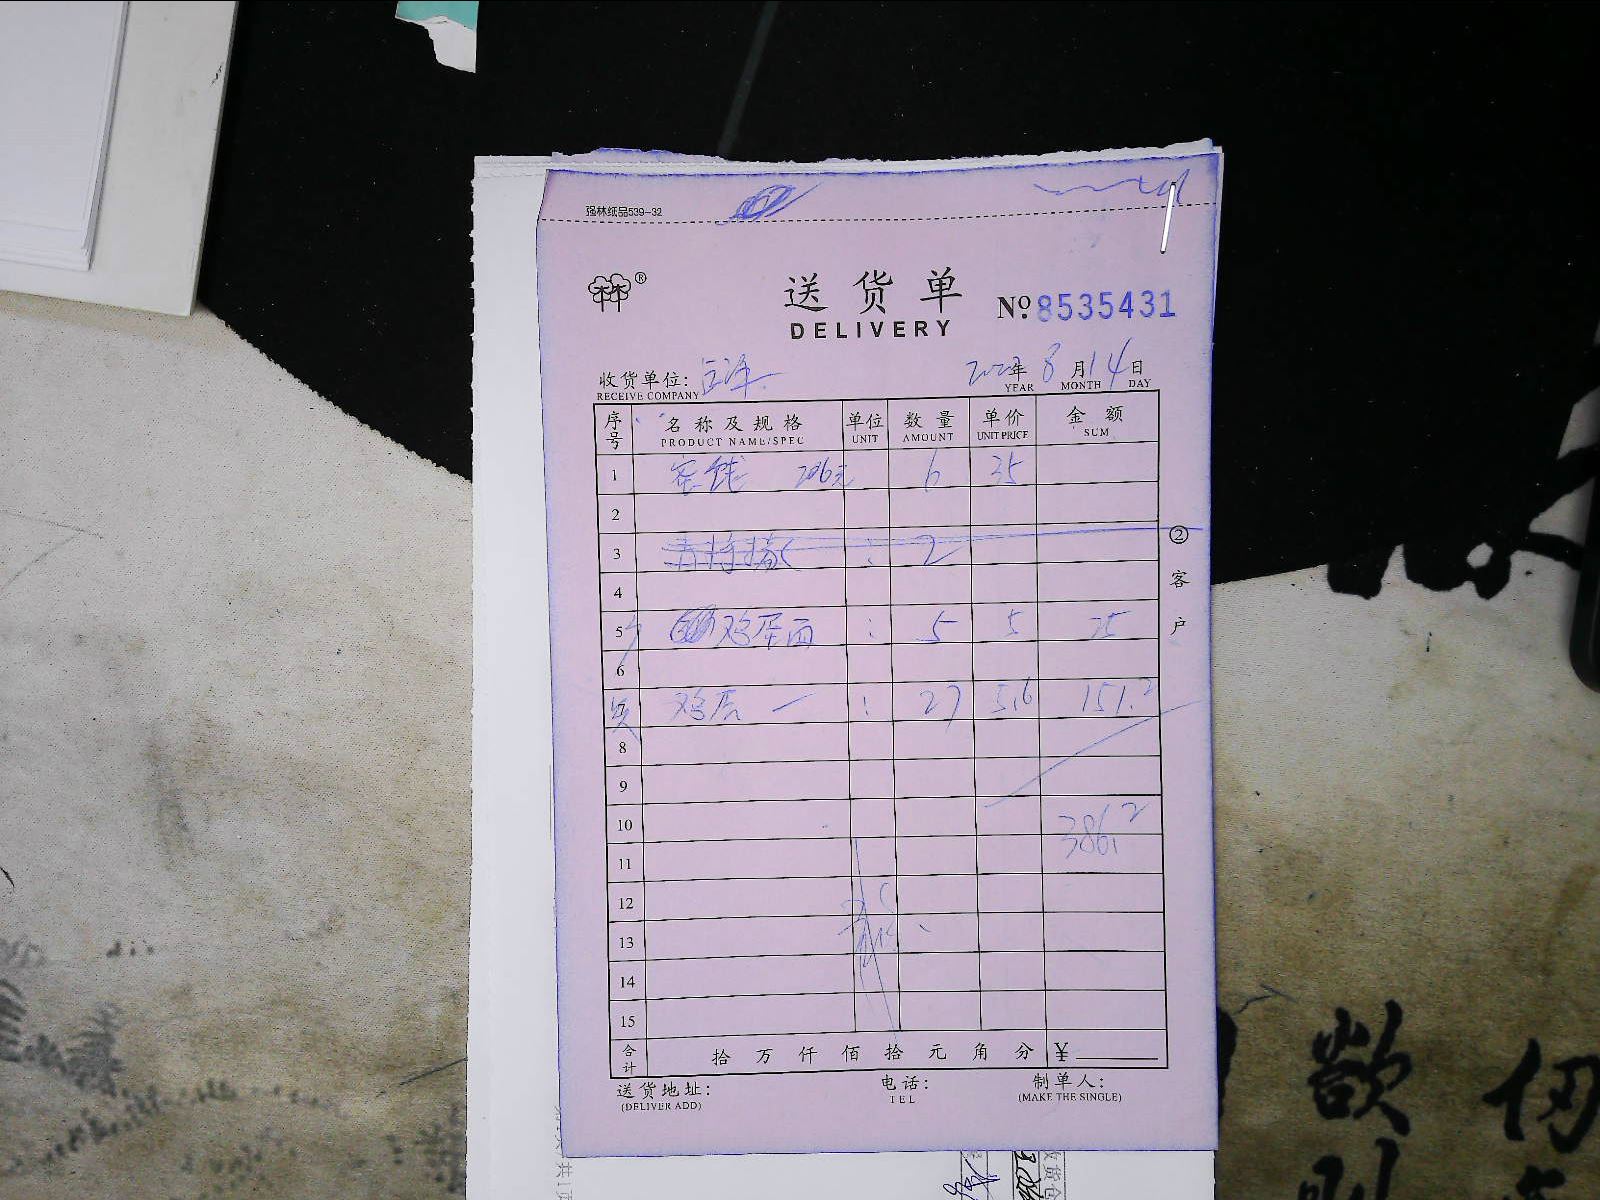 强林纸品539-32
送货单 №8535431
DELIVERY
收货单位: 2022年8月14日
RECEIVE COMPANY YEAR MONTH DAY
序号 名称及规格 单位 数量 单价 金额
PRODUCT NAME/SPEC UNIT AMOUNT UNIT PRICE SUM
1 6 35
2
3 2
4
5 鸡蛋面 : 5 5 25
6
7 鸡蛋 : 27 5.6 151.2
8
9
10 386.2
11
12
13
14
15
合计 拾万仟佰拾元角分 ¥
送货地址: 电话: 制单人:
(DELIVER ADD) TEL (MAKE THE SINGLE)
②客户
欲